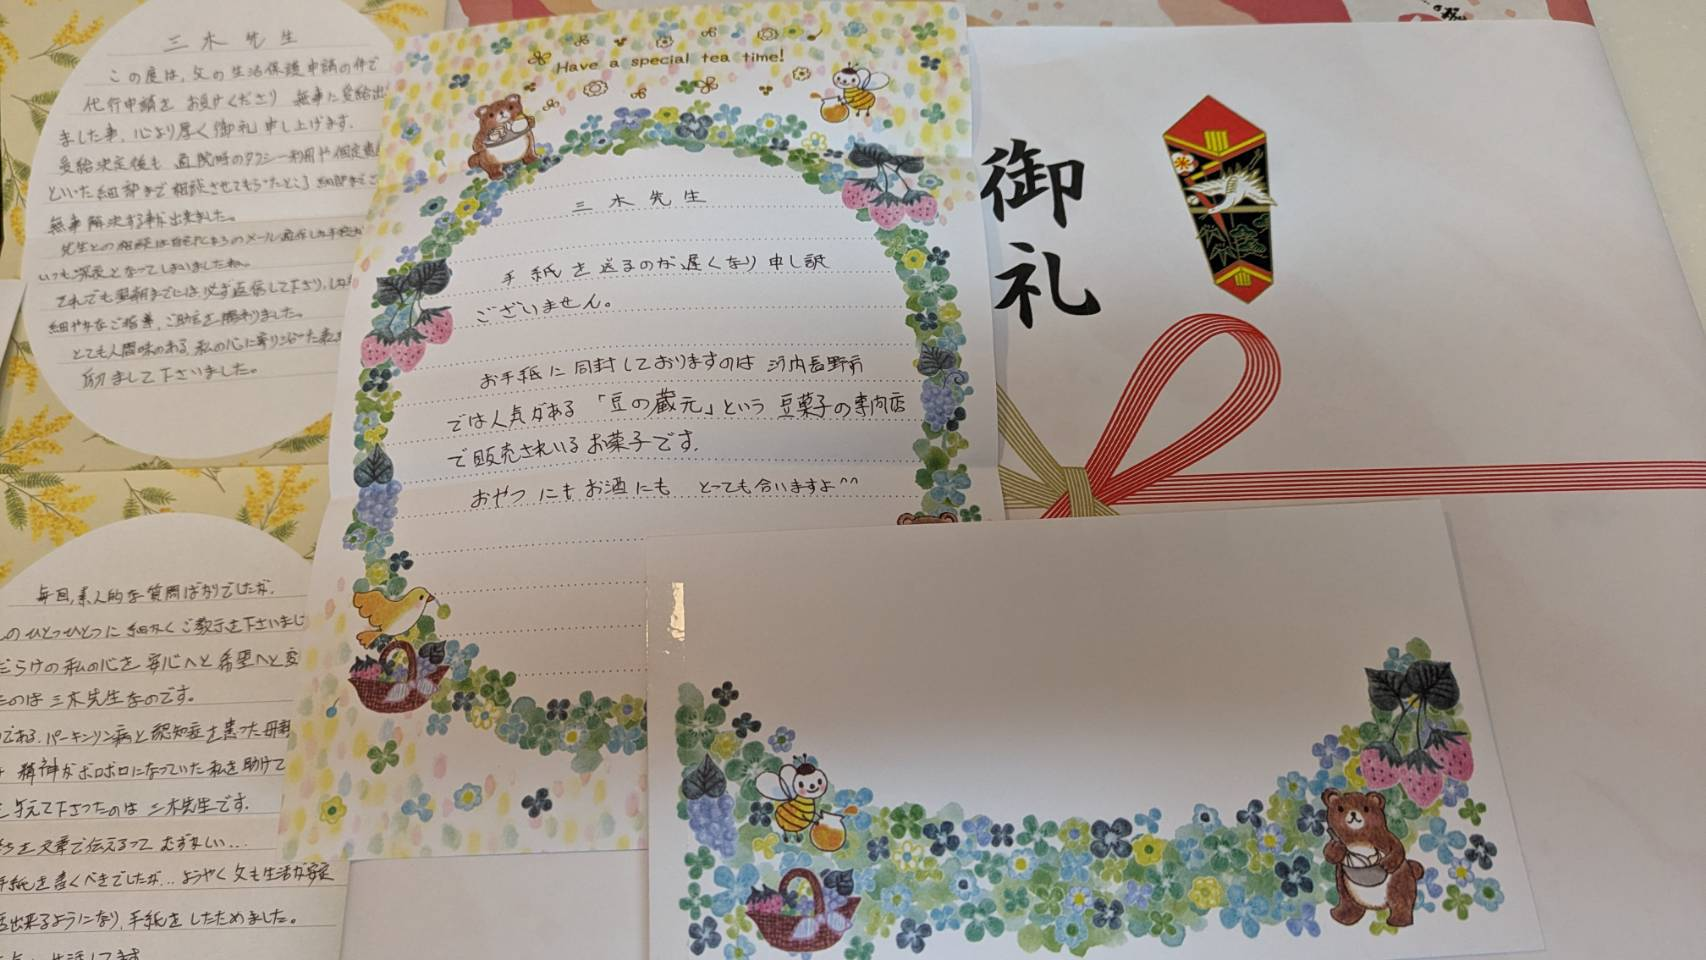 三木先生
この度は、父の生活保護申請の件で
代行申請をお受けくださり 無事に受給出
ました事、心より厚く御礼申し上げます。
受給決定後も 通院時のタクシー利用や
といった細部まで相談させてもらったところ
無事解決する事が出来ました。
先生との相談は
いつも深夜となってしまいましたね。
それでも翌朝までには必ず返信して下さり、
細やかなご指導、ご助言を賜わりました。
とても人間味のある、私の心に寄り沿った
励まして下さいました。
毎回、素人的な質問ばかりでしたが、
のひとつひとつに細かくご教示を下さいまし
だらけの私の心を 安心へと希望へと変
のは三木先生なのです。
である、パーキンソン病と認知症を患った母
精神がボロボロになっていた私を助けて
与えて下さったのは 三木先生です。
を文章で伝えるって むずかしい...
手紙を書くべきでしたが...ようやく父も生活が安定
出来るようになり、手紙をしたためました。
Have a special tea time!
三木先生
手紙を送るのが遅くなり申し訳
ございません。
お手紙に同封しておりますのは 河内長野市
では人気がある「豆の蔵元」という 豆菓子の専門店
で販売されいるお菓子です。
おやつにもお酒にも とっても合いますよ^^
御礼